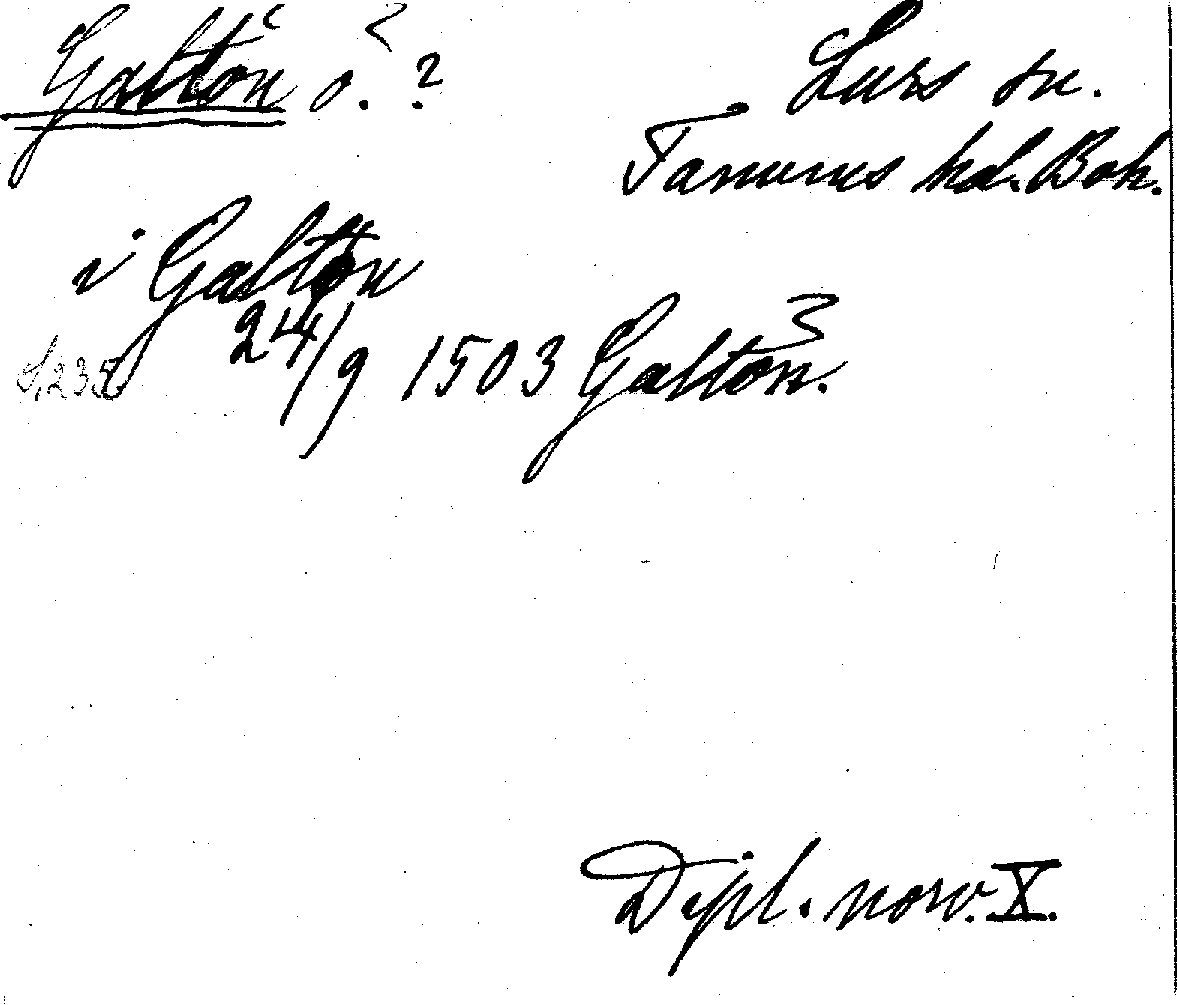 Galtön ö. ?
Lurs sn.
Tanums hd. Boh.
i Galtøn
24/9 1503 Galtön.
S. 235
Dipl. norv. X.